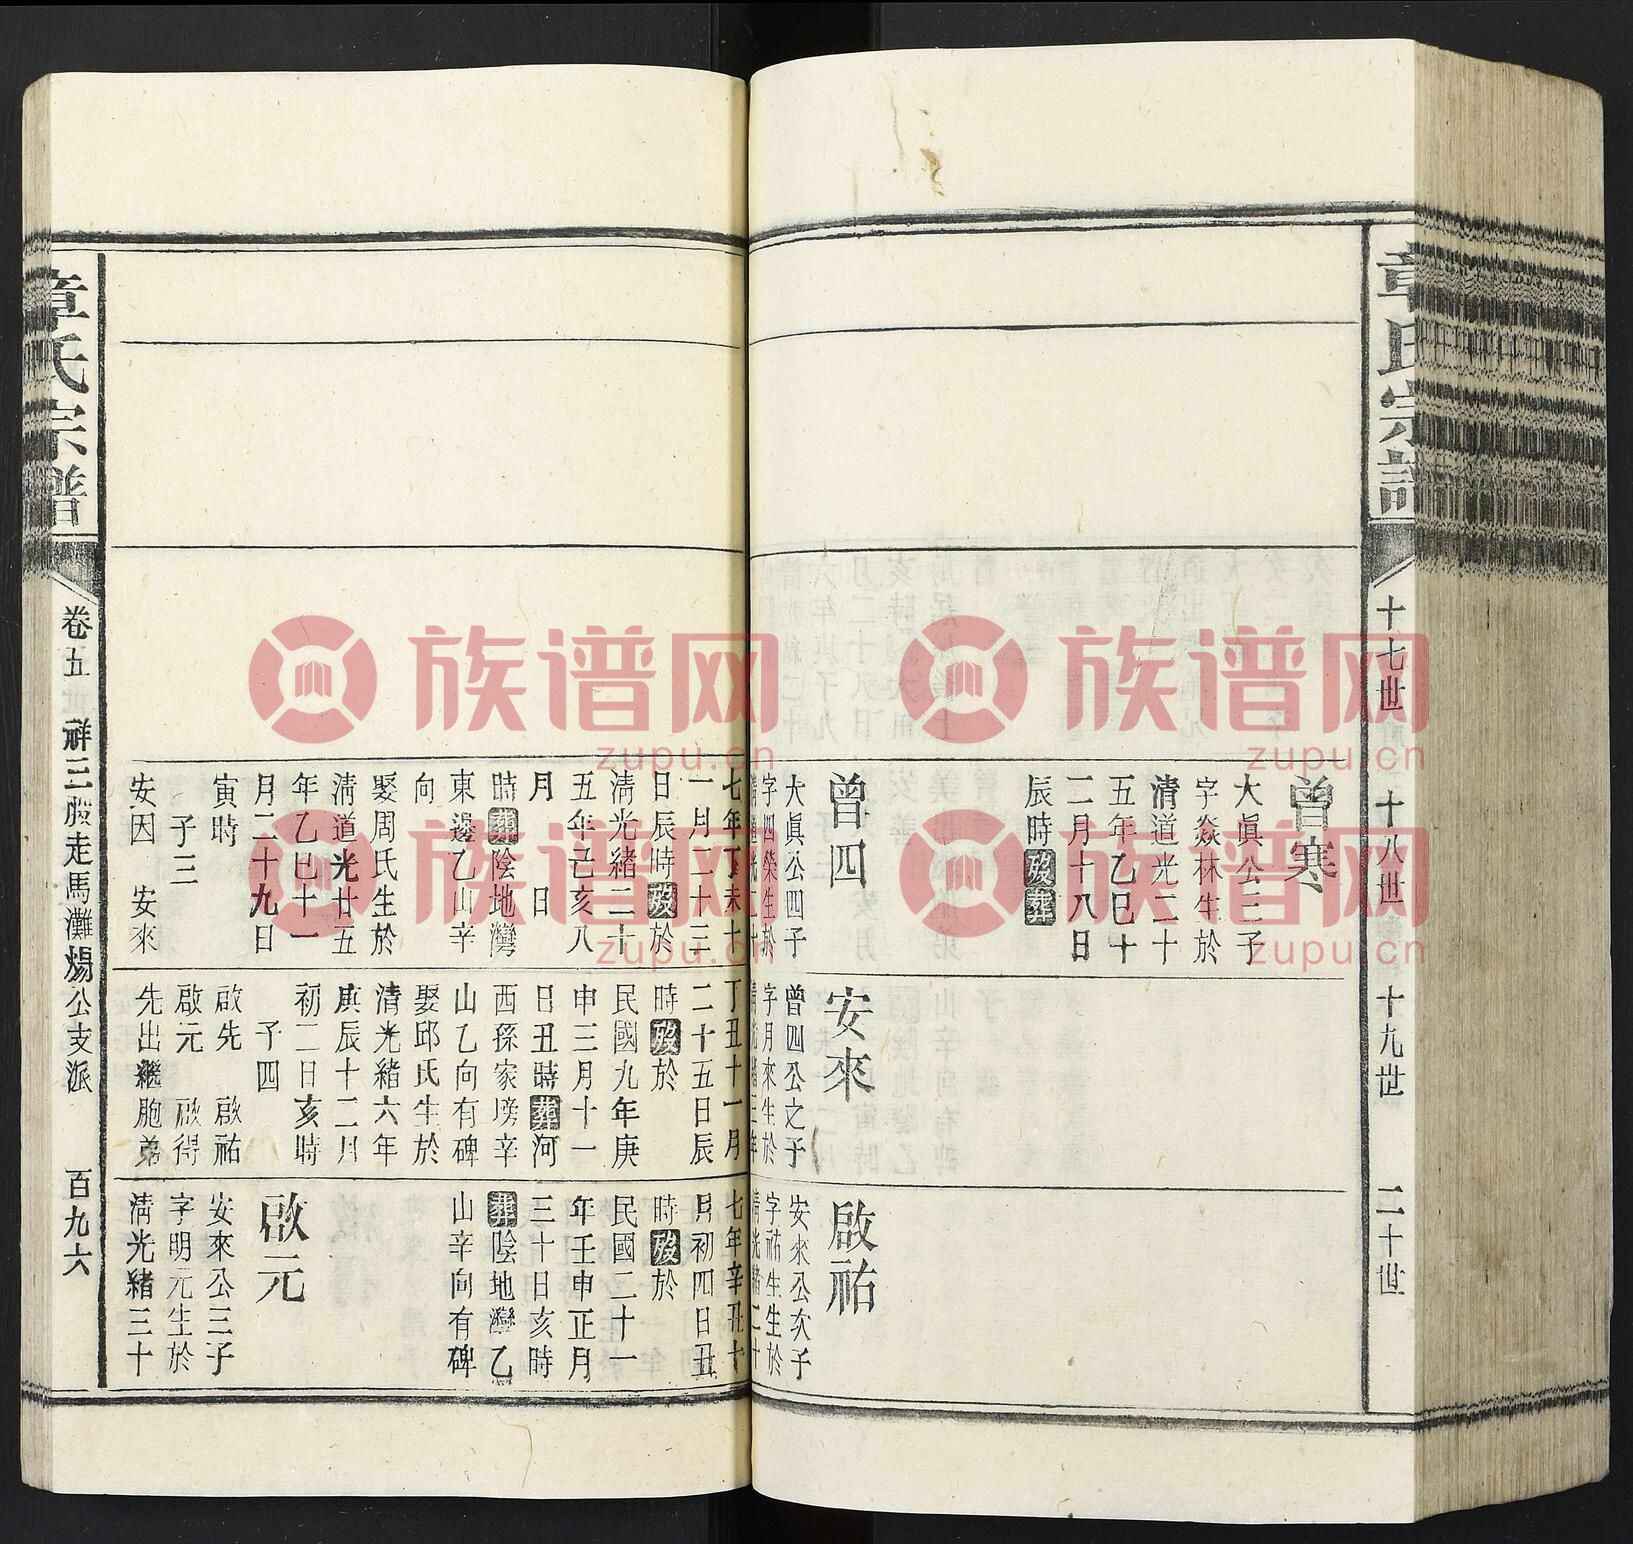 章氏宗譜
十七世
十八世
十九世
二十世
曾寒
大眞公三子
字焱林生於
清道光二十
五年乙巳十
二月十八日
辰時歿葬
曾四
大眞公四子
字四榮生於
清道光二十
七年丁未十
一月二十三
日辰時歿於
清光緒二十
五年己亥八
月 日
時葬陰地灣
東邊乙山辛
向
娶周氏生於
清道光廿五
年乙巳十一
月二十九日
寅時
子三
安因 安來
安來
曾四公之子
字月來生於
清光緒三年
丁丑十一月
二十五日辰
時歿於
民國九年庚
申三月十一
日丑時葬河
西孫家塝辛
山乙向有碑
娶邱氏生於
清光緒六年
庚辰十二月
初二日亥時
子四
啟先 啟祐
啟元 啟得
先出繼胞弟
啟祐
安來公次子
字祐生生於
清光緒二十
七年辛丑十
月初四日丑
時歿於
民國二十一
年壬申正月
三十日亥時
葬陰地灣乙
山辛向有碑
啟元
安來公三子
字明元生於
清光緒三十
章氏宗譜
卷五
祥三殿走馬灘煬公支派
百九六
族谱网
zupu.cn
族谱网
zupu.cn
族谱网
zupu.cn
族谱网
zupu.cn